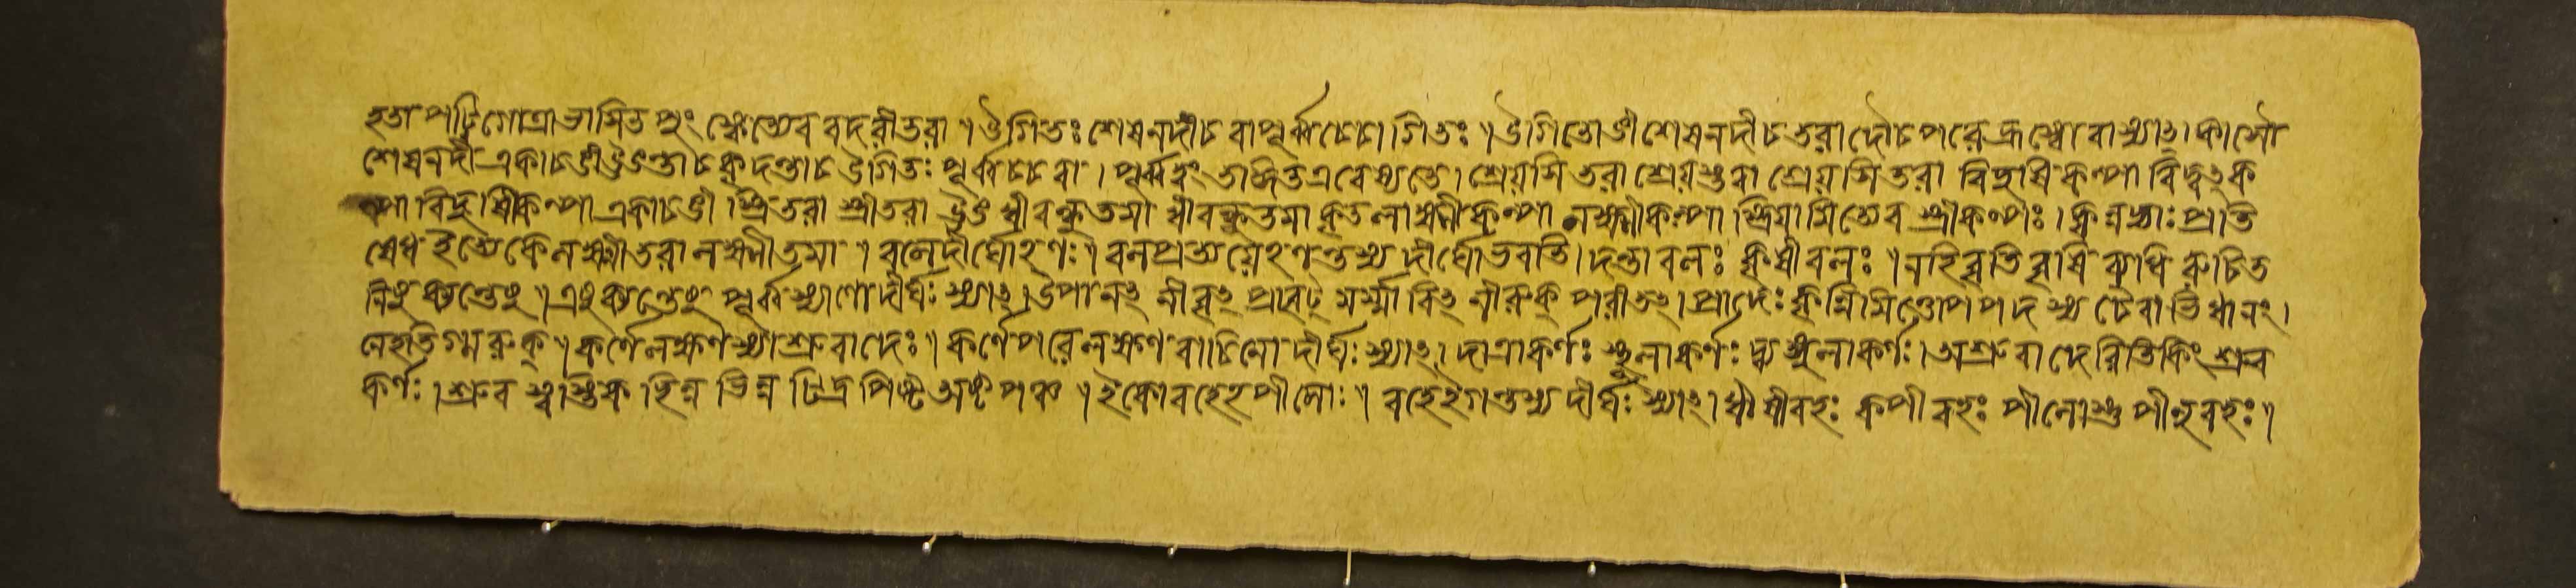 হতা পট্টিগোত্রাভাষিত পুং স্কেত্যেব বদরীতরা । উগিতঃ শেষনদীচ বা পূর্ব্বচেচাগিতঃ । উগিতোঙী শেষনদীচ তরাদৌচ পরে হ্রস্বো বা স্যাৎ। কাসৌ
শেষনদী একাচ ঙীউঙন্তাচ কৃদন্তাচ উগিতঃ পূর্ব্বচ্চ বা । পূর্ব্বং তাদ্ধিত এবেষ্যতে। শ্রেয়সিতরা শ্রেয়স্তরা শ্রেয়সিতরা বিদুষিকল্পা বিদ্বৎক
ল্পা বিদুষীকল্পা একাচ ঙী স্ত্রিতরা স্ত্রীতরা উঙ বীবন্ধুতমা বীবন্ধুতমা কৃত লক্ষ্মীকল্পা লক্ষ্মীকল্পা স্ত্রিয়ামিত্যেব শ্রীকল্পঃ । কৃন্নদ্যাঃ প্রতি
ষেধ ইত্যেকে লক্ষ্মীতরা লক্ষ্মীতমা । বলে দীর্ঘোহণঃ । বলপ্রত্যয়েহণন্তস্য দীর্ঘো ভবতি। দন্তাবলঃ কৃষীবলঃ । নহি বৃতি বৃষি ব্যধি রুচিত
নিষু ক্যন্তেষু । এষু ক্যন্তেষু পূর্ব্বস্যাণো দীর্ঘঃ স্যাৎ। উপানৎ নীবৃৎ প্রাবৃট্ মর্ম্মাবিৎ নীরুক্ পরীতৎ। প্রাদেঃ কৃন্নিমিত্তোপপদস্য চেবাভিধানং।
নেহ তিগ্মরুক্ । কর্ণে লক্ষণস্যাশ্রুবাদেঃ । কর্ণে পরে লক্ষণবাচিনো দীর্ঘঃ স্যাৎ। দাত্রাকর্ণঃ স্থূলাকর্ণঃ দ্ব্যঙ্গুলাকর্ণঃ । অশ্রুবাদেরিতি কিং শ্রুব
কর্ণঃ । শ্রুব স্বস্তিক ছিন্ন ভিন্ন ছিদ্র পিষ্ট অষ্ট পঞ্চ । ইকো বহেহপীলোঃ । বহে ইগন্তস্য দীর্ঘঃ স্যাৎ। ঋষীবহঃ কপীবহঃ পীলোস্তু পীলুবহঃ ।